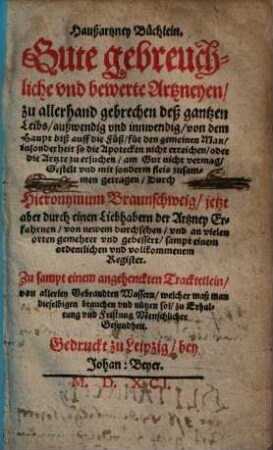 Haußartzney Büchlein.
Gute gebreuch-
liche vnd bewerte Artzneyen/
zu allerhand gebrechen deß gantzen
Leibs/ außwendig vnd innwendig/ von dem
Haupt biß auff die Füß/ für den gemeinen Man/
insonderheit so die Apotecken nicht erreichen/ oder
die Artzte zu ersuchen/ am Gut nicht vermag/
Gestelt vnd mit sonderm fleis zusam-
men getragen/ Durch
Hieronymum Braunschweig/ jetzt
aber durch einen Liebhabern der Artzney Er-
fahrnen/ von newem durchsehen/ vnd an vielen
orten gemehret vnd gebessert/ sampt einem
ordentlichen vnd vollkommenem
Register.
Zu sampt einem angehenckten Tracktetlein/
von allerley Gebrandten Wassern/ welcher maß man
dieselbigen brauchen vnd nützen sol/ zu Erhal-
tung vnd Fristung Menschlicher
Gesundheit.
Gedruckt zu Leipzig/ bey
Johan: Beyer.
M. D. XCI.